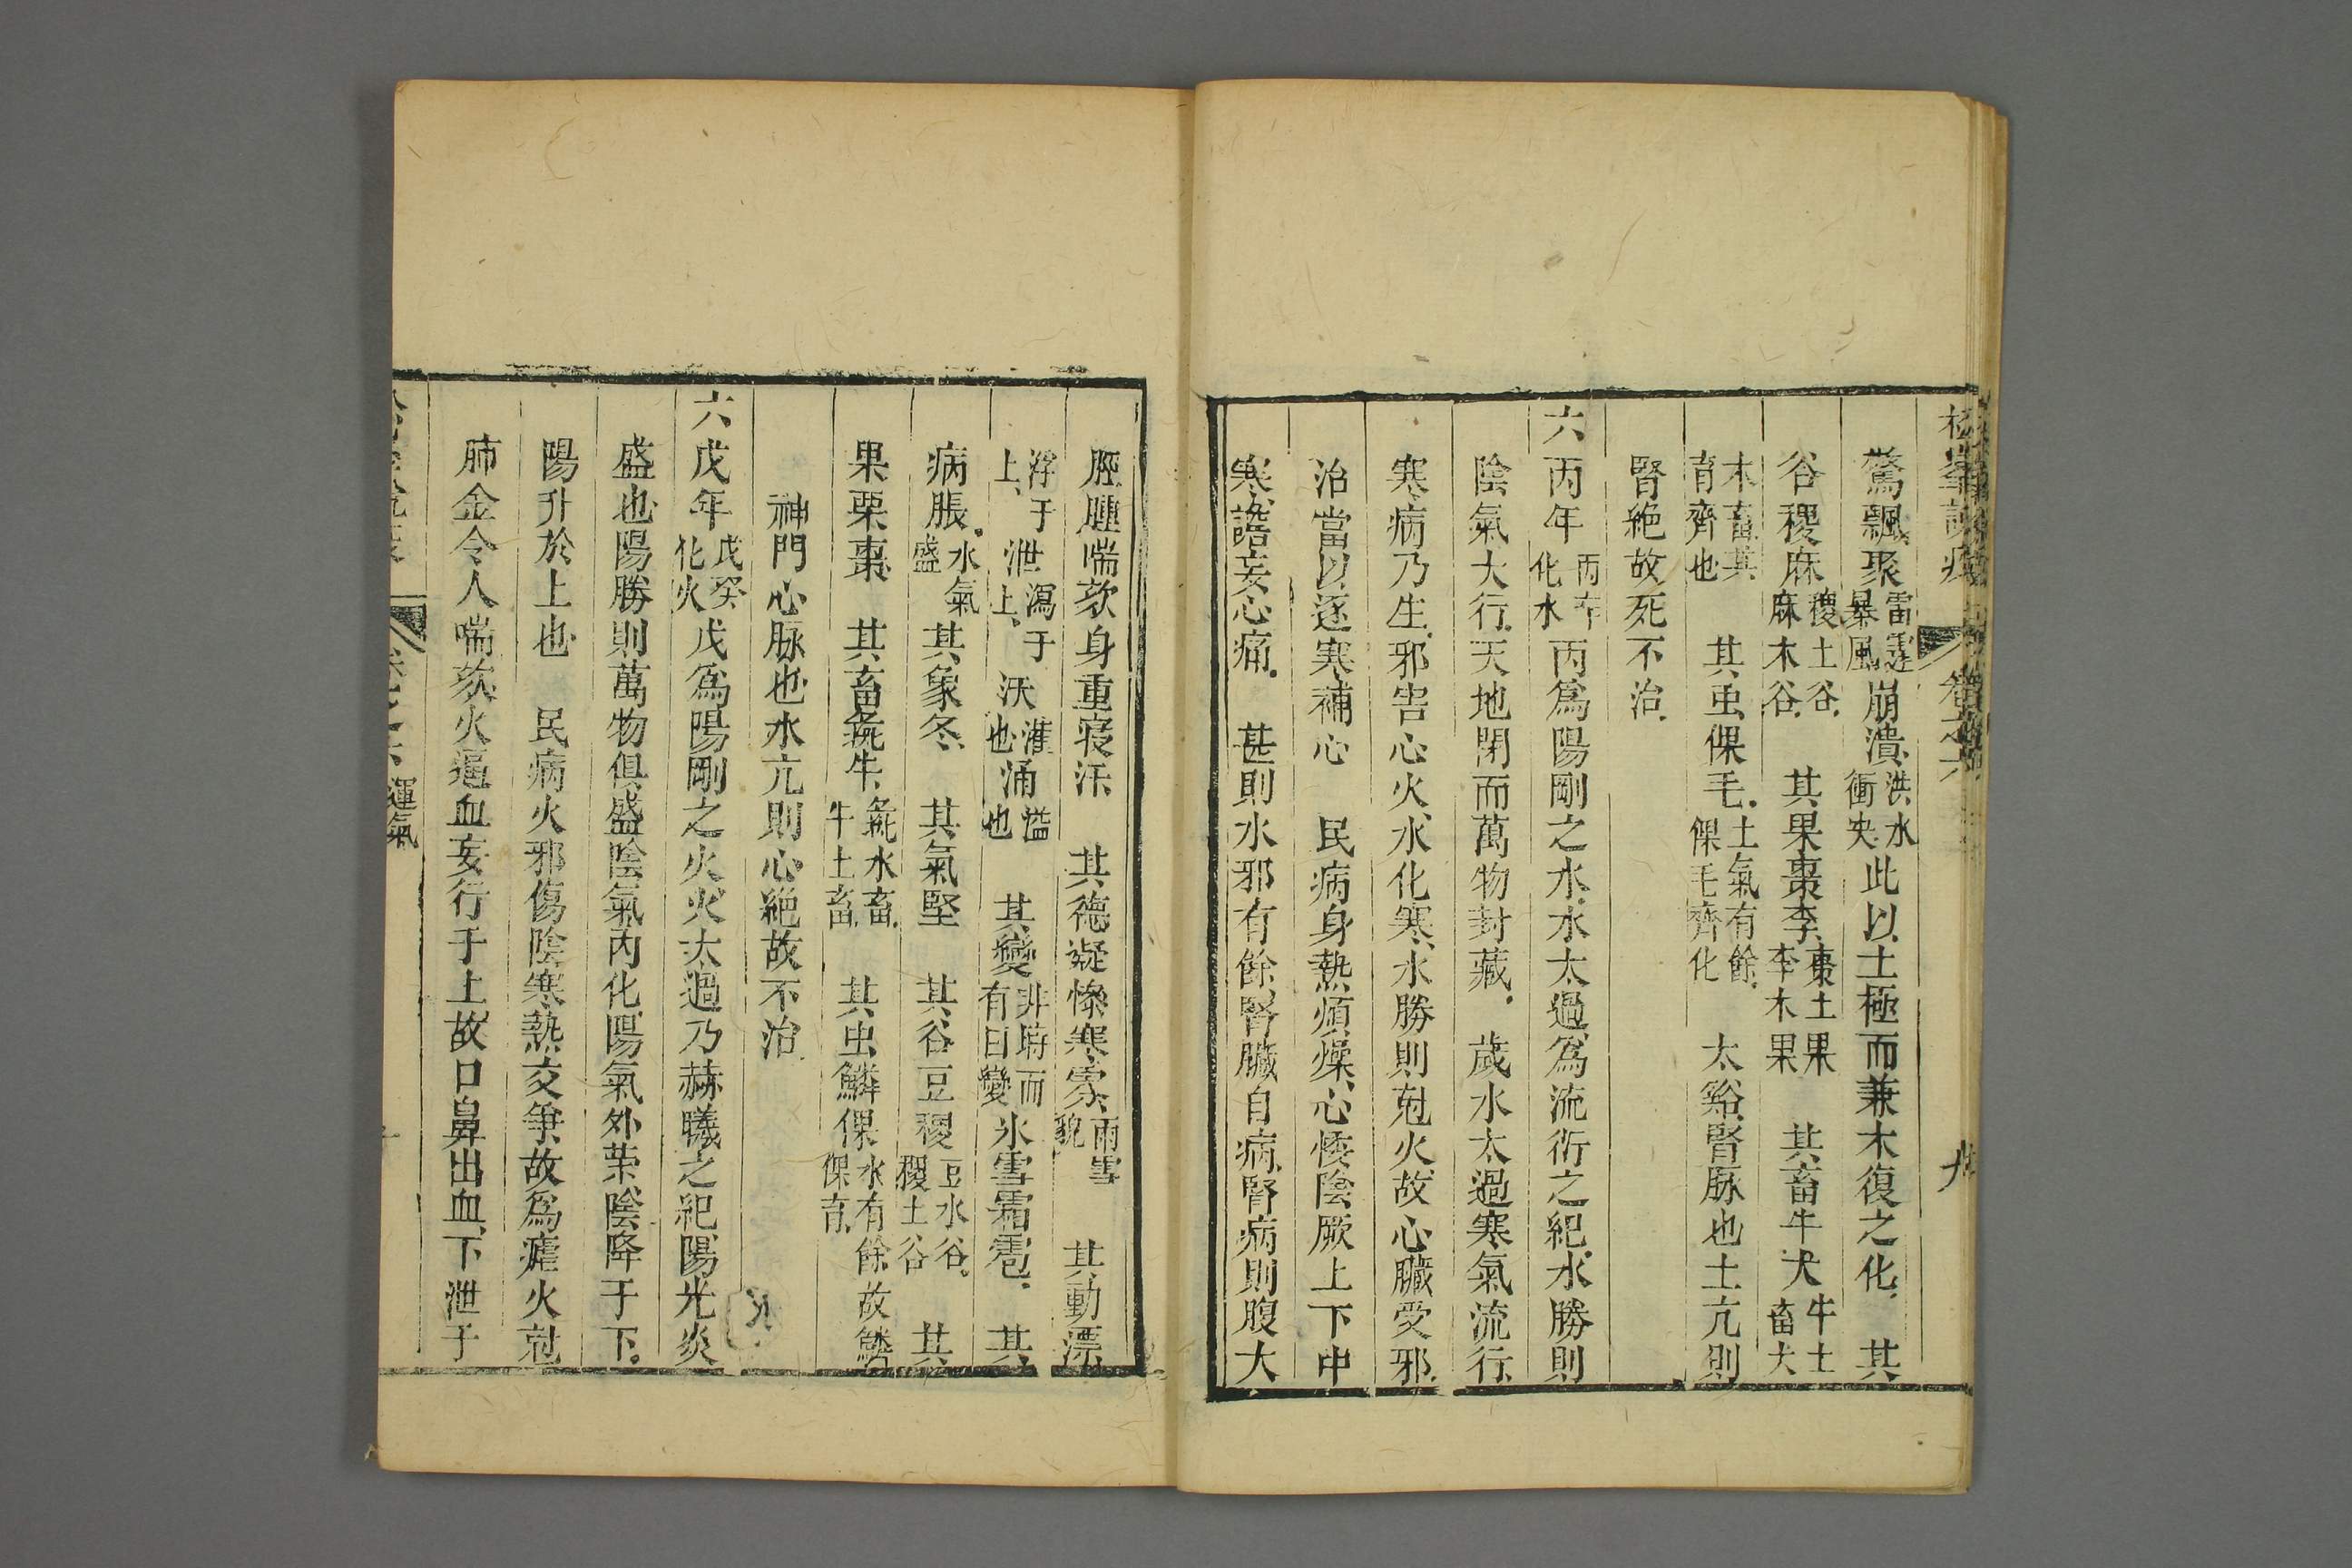 松峯說疫 卷之六 九
驚飄聚雷霆暴風崩潰洪水衝決此以土極而兼木復之化其
谷稷麻稷土谷麻木谷其果棗李棗土果李木果其畜牛犬牛土畜犬
木畜其育齊也其虫倮毛土氣有餘倮毛齊化太谿腎脉也土亢則
腎絶故死不治
六丙年丙辛化水丙爲陽剛之水水太過爲流衍之紀水勝則
陰氣大行天地閉而萬物封藏歲水太過寒氣流行
寒病乃生邪害心火水化寒水勝則尅火故心臟受邪
治當以逐寒補心民病身熱煩燥心悸陰厥上下中
寒譫妄心痛甚則水邪有餘腎臟自病腎病則腹大
脛腫喘欬身重寢汗其德凝慘寒雰雨雪貌其動漂
浮于上泄瀉于上沃灌也涌溢也其變非時而有曰變氷雪霜雹其
病脹水氣盛其象冬其氣堅其谷豆稷豆水谷稷土谷其
果栗棗其畜彘牛彘水畜牛土畜其虫鱗倮水有餘故鱗倮育
神門心脉也水亢則心絶故不治
六戊年戊癸化火戊爲陽剛之火火太過乃赫曦之紀陽光炎
盛也陽勝則萬物俱盛陰氣內化陽氣外榮陰降于下
陽升於上也民病火邪傷陰寒熱交爭故爲瘧火尅
肺金令人喘欬火逼血妄行于上故口鼻出血下泄于
運氣